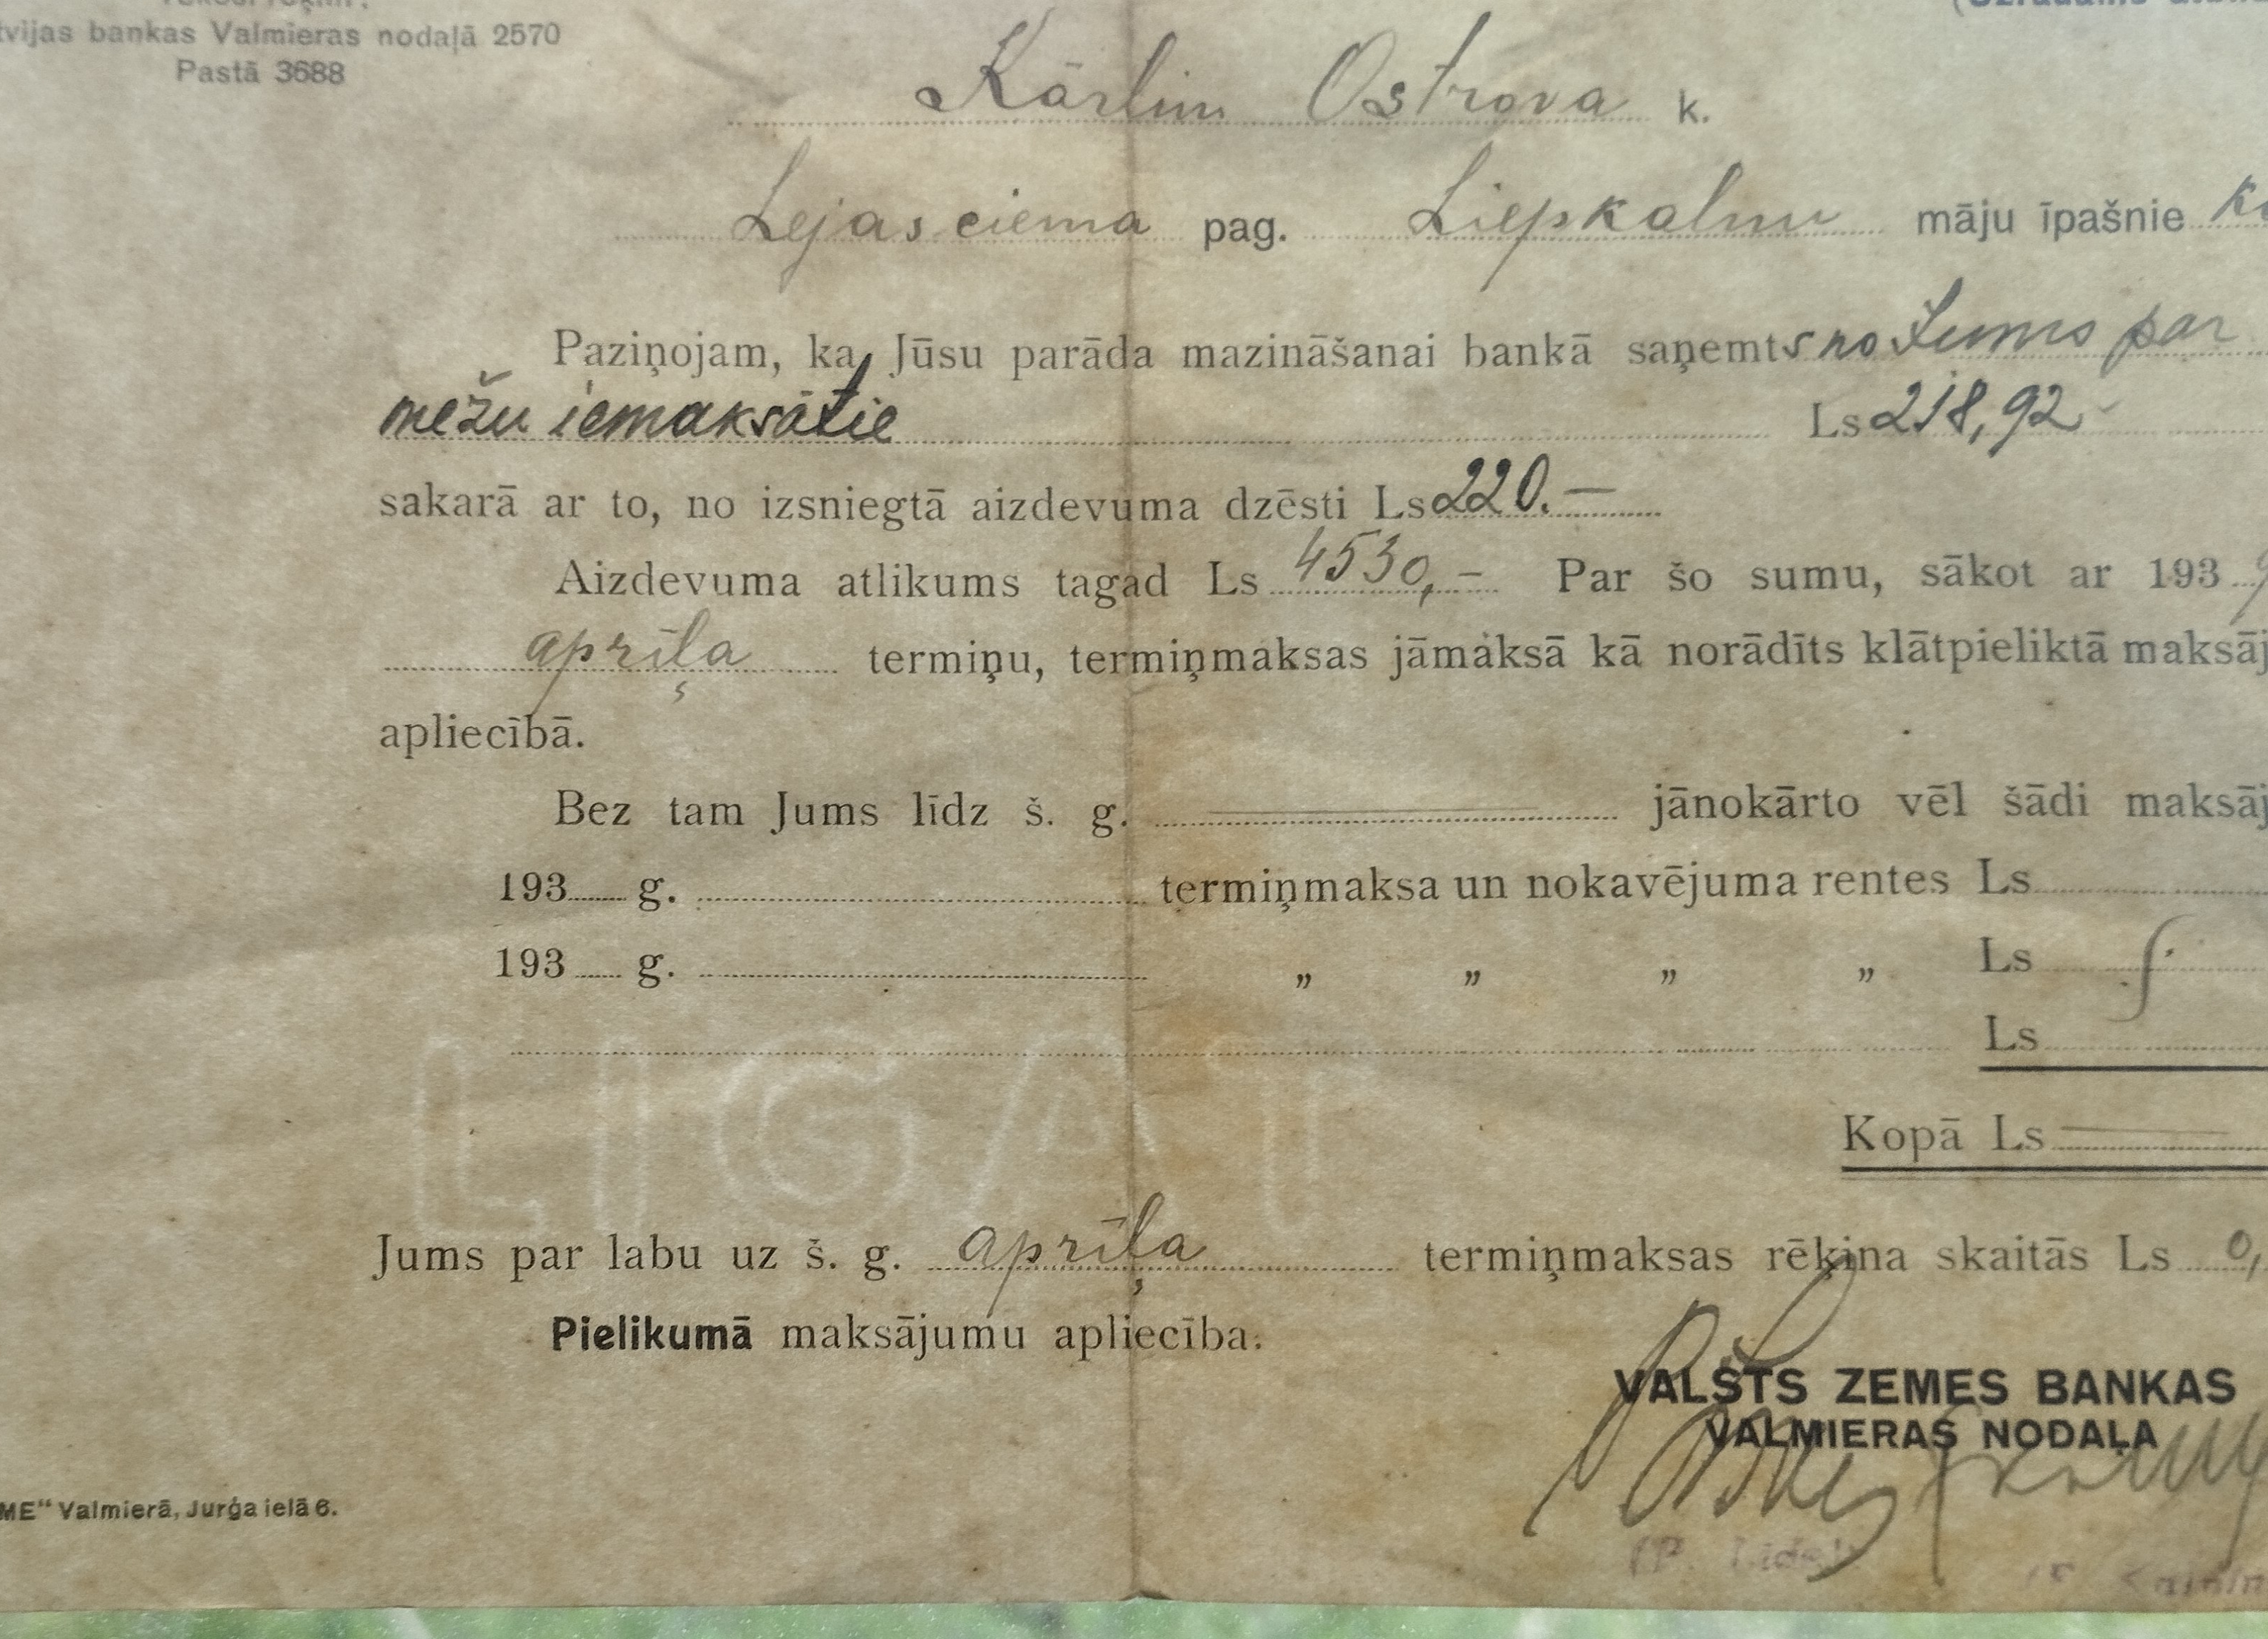 Latvijas bankas Valmieras nodaļā 2570
Pastā 3688
Kārlim Ostrova k.
Lejasciema pag. Liepkalnu māju īpašnie
Paziņojam, ka Jūsu parāda mazināšanai bankā saņemts no Jums par
mežu iemaksātie Ls 218,92
sakarā ar to, no izsniegtā aizdevuma dzēsti Ls 220.—
Aizdevuma atlikums tagad Ls 4530,- Par šo sumu, sākot ar 1939
aprīļa termiņu, termiņmaksas jāmaksā kā norādīts klātpieliktā maksāj
apliecībā.
Bez tam Jums līdz š. g. jānokārto vēl šādi maksāj
193 g. termiņmaksa un nokavējuma rentes Ls
193 g. „ „ „ „ Ls
Ls
LIGAT
Kopā Ls
Jums par labu uz š. g. aprīļa termiņmaksas rēķina skaitās Ls 0,
Pielikumā maksājumu apliecība.
VALSTS ZEMES BANKAS
VALMIERAS NODAĻA
ME“ Valmierā, Jurģa ielā 6.